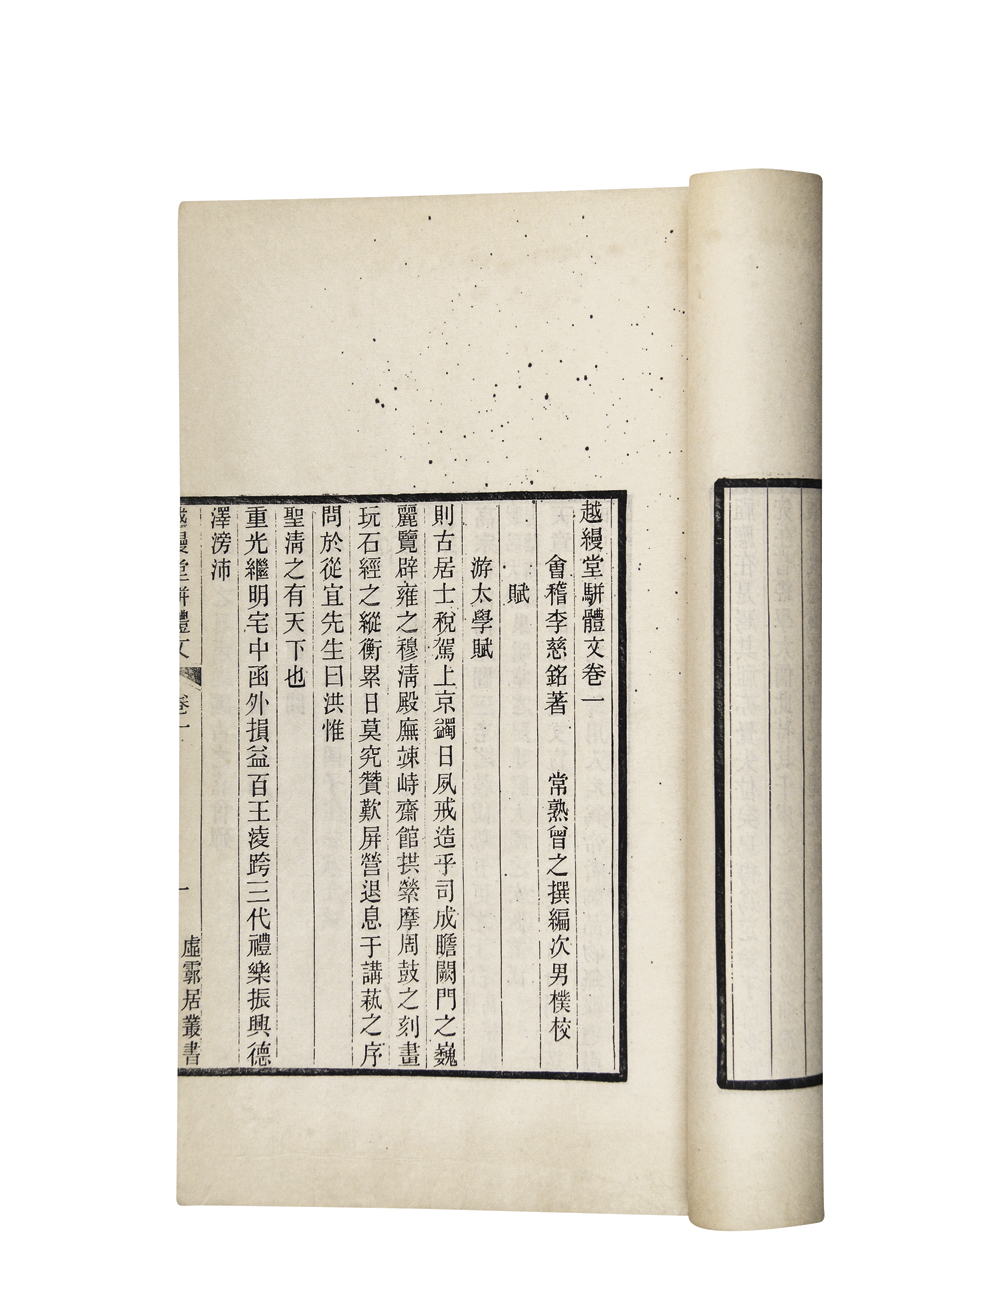 越縵堂駢體文卷一
會稽李慈銘著 常熟曾之撰編次男樸校
賦
游太學賦
則古居士稅駕上京蠲日夙戒造乎司成瞻闕門之巍
麗覽辟雍之穆淸殿廡竦峙齋館拱縈摩周鼓之刻畫
玩石經之縱衡累日莫究贊歎屏營退息于講蓺之序
問於從宜先生曰洪惟
聖淸之有天下也
重光繼明宅中函外損益百王淩跨三代禮樂振興德
澤滂沛
越縵堂駢體文 卷一 一 虛霩居叢書